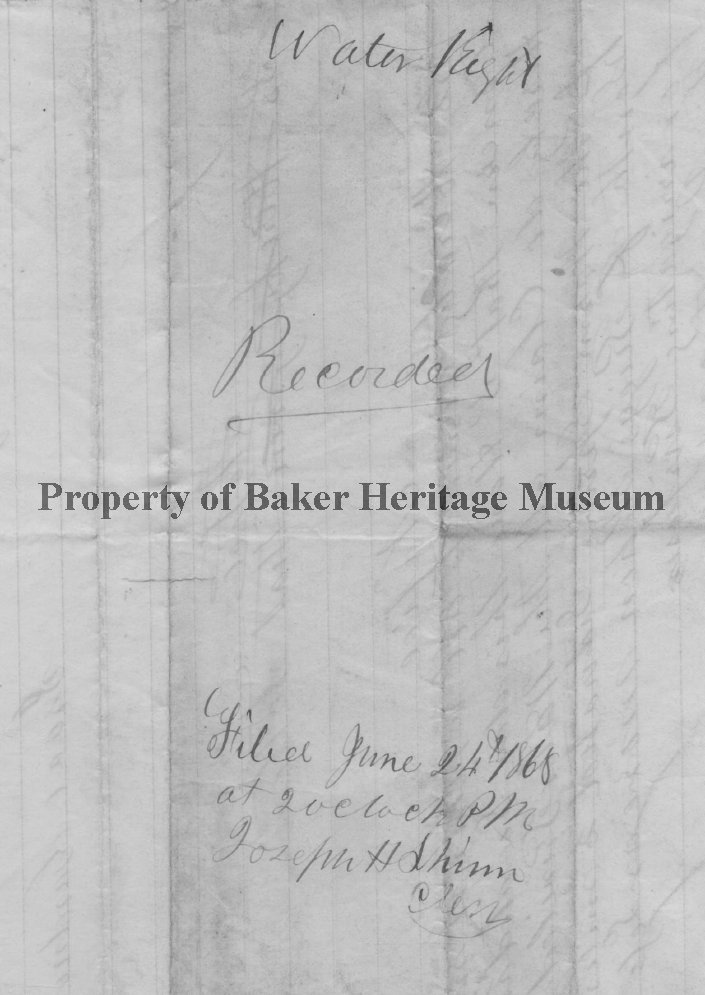 Water Right
Recorded
Property of Baker Heritage Museum
Filed June 24th 1868
at 2 oclock P M
Joseph H Shinn
Clerk